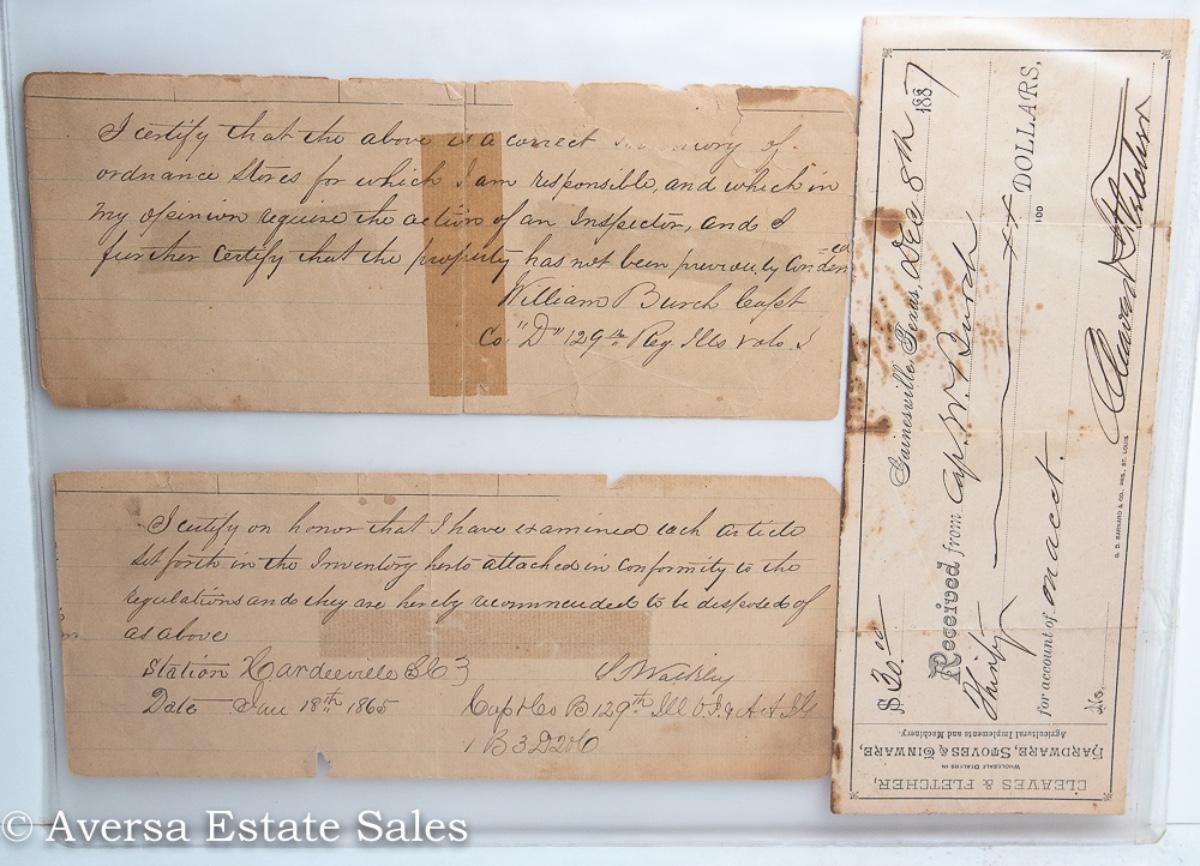 I certify that the above is a correct of
ordnance stores for which I am responsible, and which in
my opinion require the action of an Inspector, and I
further certify that the property has not been previously Condened
William Burch Capt
Co. "D" 129th Reg. Ills vols. I
I certify on honor that I have examined each article
set forth in the Inventory herto attached in Conformity to the
regulations and they are hereby recommended to be disposed of
as above
Station Hardeeville SC
Date Jan 18th 1865
S Walkley
Capt Co B 129th Ill V. I. & A A I G
1 B 3 D 20 C
CLEAVES & FLETCHER,
WHOLESALE DEALERS IN
HARDWARE, STOVES & TINWARE,
Agricultural Implements and Machinery.
$30.00 Gainesville, Texas, Dec 8th 1887
Received from Cap. W. Burch
Thirty xx/100 DOLLARS,
for account of on acct.
No. Cleaves & Fletcher
G. D. BARNARD & CO., PRS., ST. LOUIS
© Aversa Estate Sales